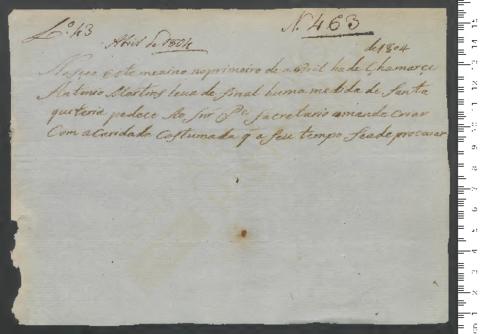 L.º 43
N. 463
Abril de 1804
de 1804
Nasceo este menino no primeiro de Abril hade Chamarçe
Antonio Martins leva de sinal huma medida de Santa
quiteria pedece Ao Snr Secretario o mande Criar
Com a Caridade Costumada q a seu tempo Seade procurar